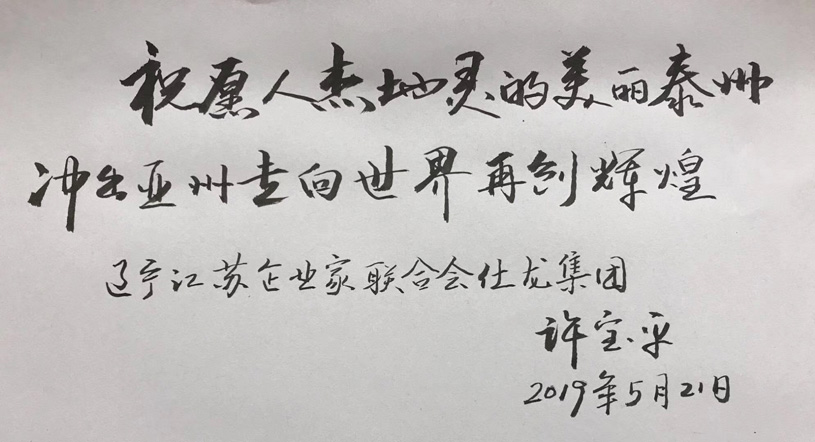 祝愿人杰地灵的美丽泰州
冲出亚州走向世界再创辉煌
辽宁江苏企业家联合会仕龙集团
许宝平
2019年5月21日